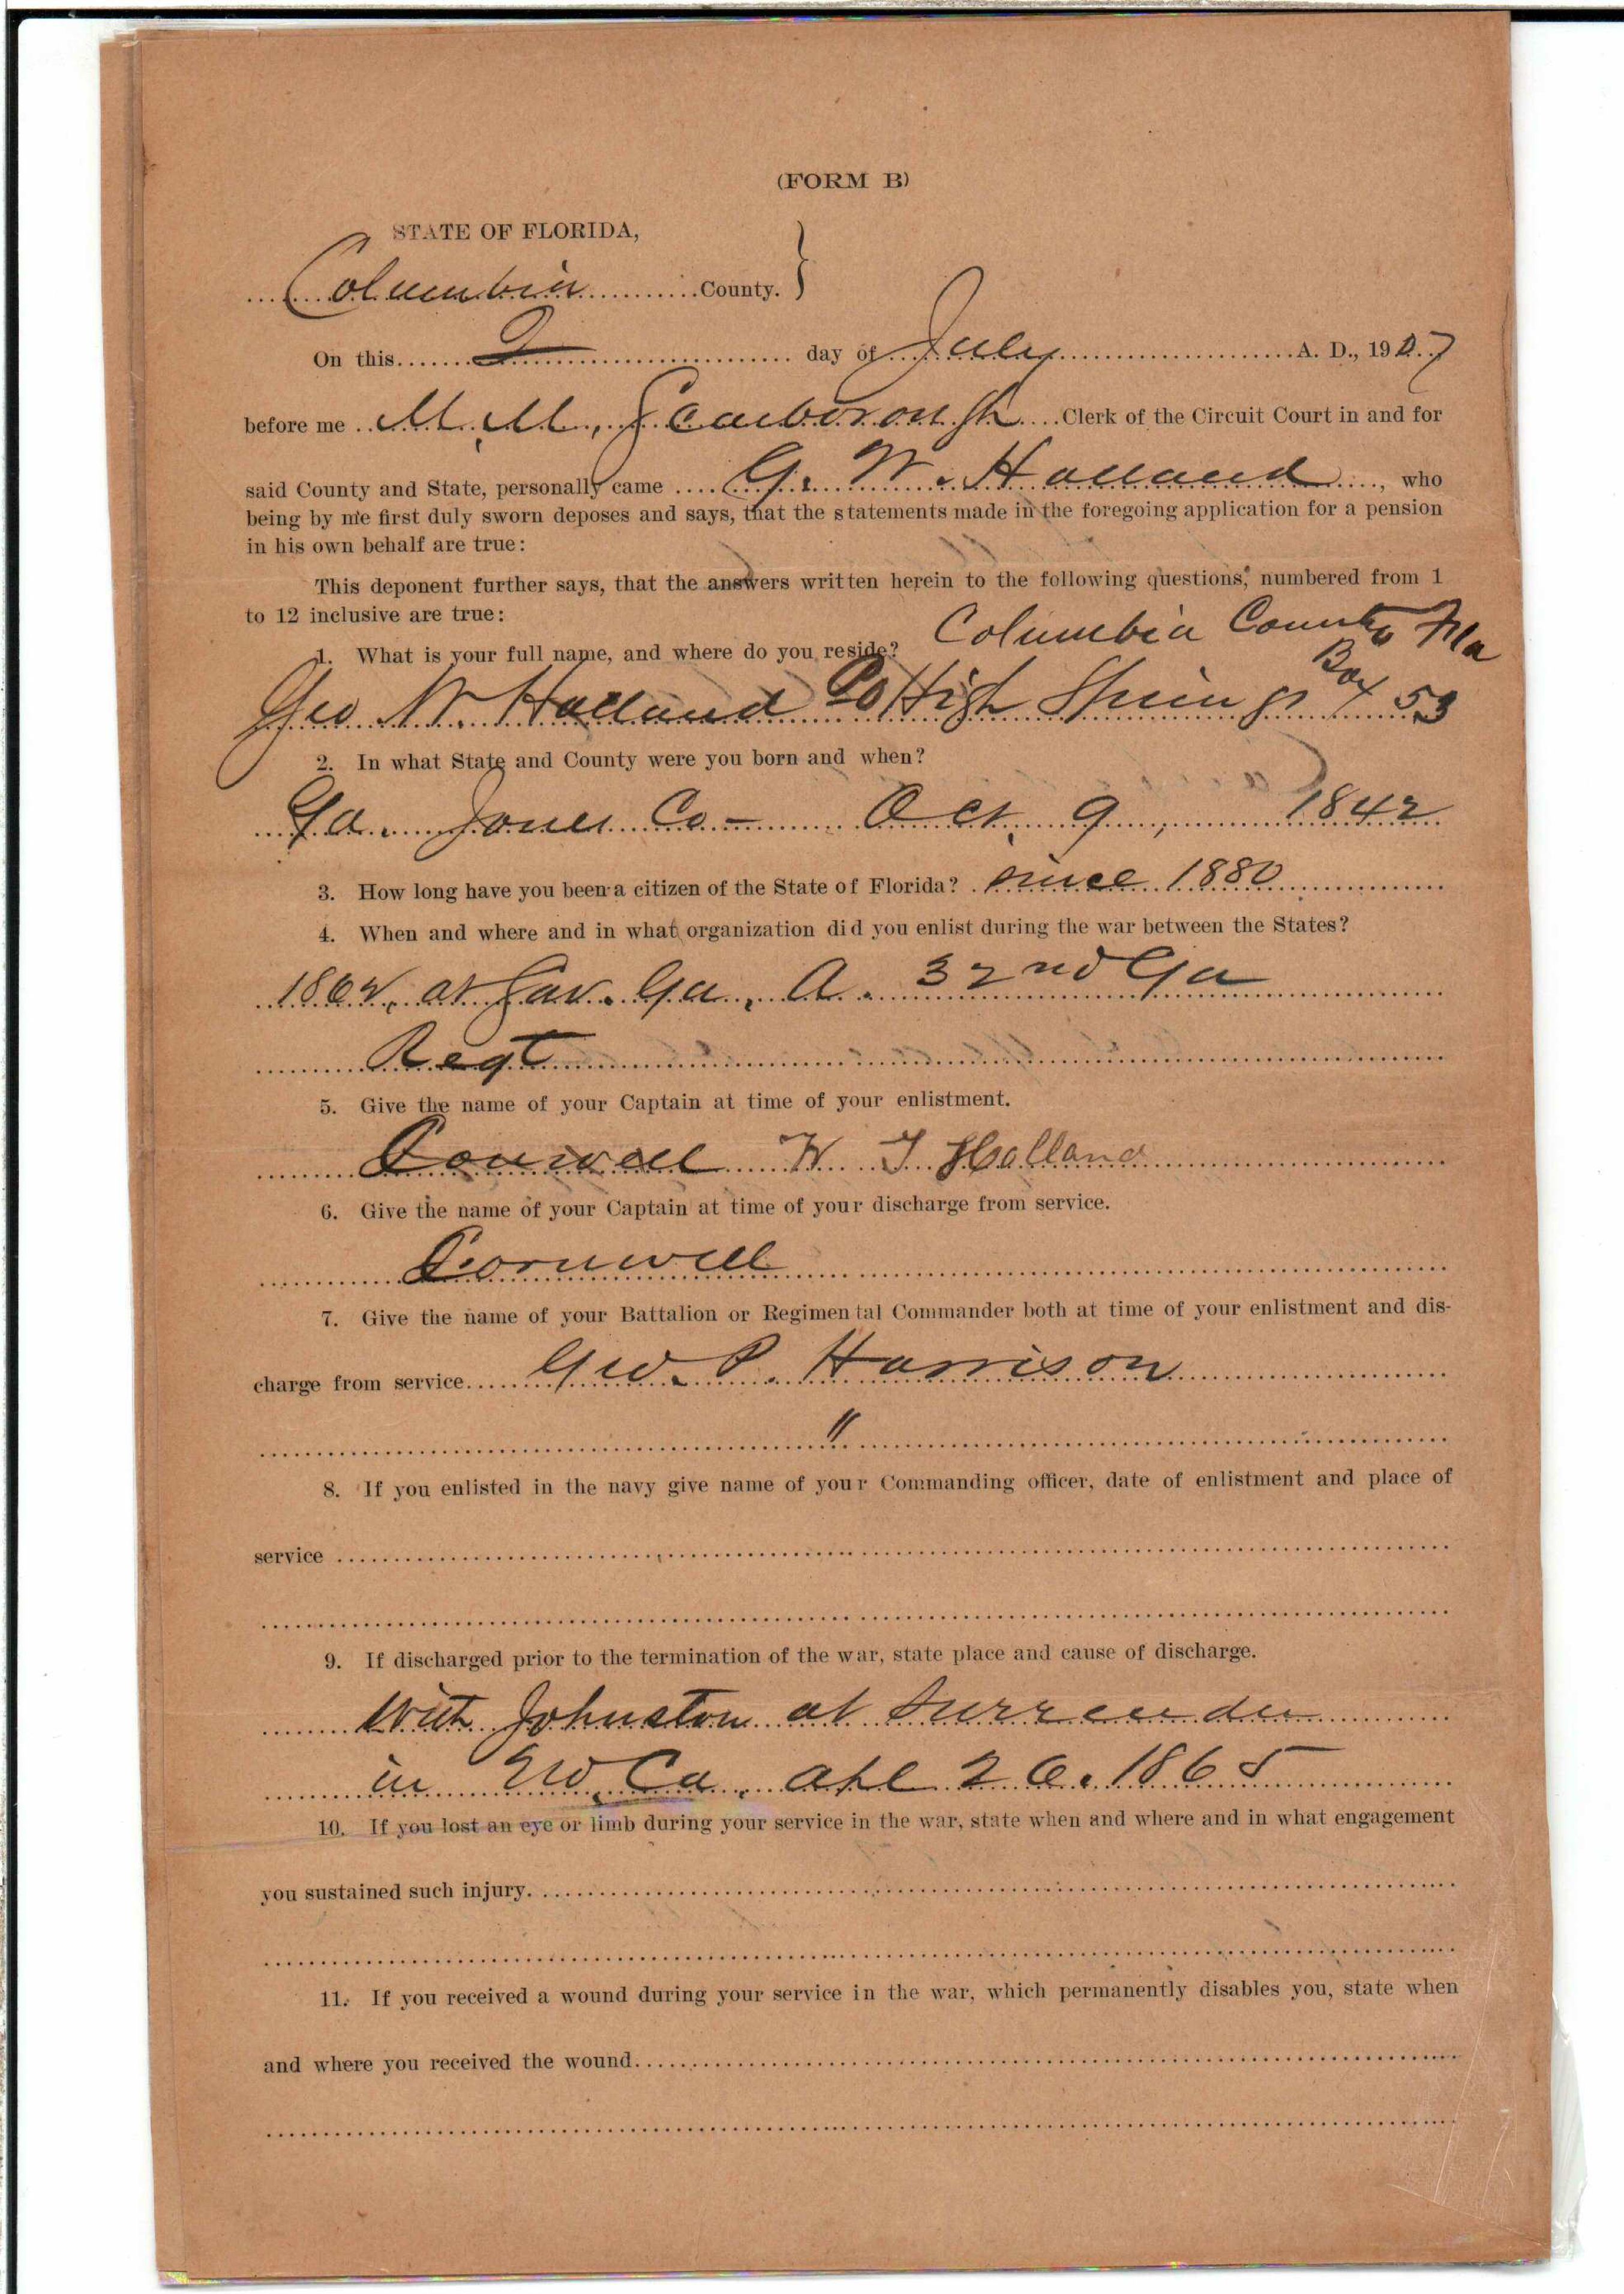 (FORM B)
STATE OF FLORIDA,
Columbia County. }
On this 2 day of July A. D., 1907
before me M. M. Scarborough Clerk of the Circuit Court in and for
said County and State, personally came G. W. Holland, who
being by me first duly sworn deposes and says, that the statements made in the foregoing application for a pension
in his own behalf are true:
This deponent further says, that the answers written herein to the following questions, numbered from 1
to 12 inclusive are true:
1. What is your full name, and where do you reside? Columbia County Fla
Geo W. Holland PO High Springs Box 53
2. In what State and County were you born and when?
Ga. Jones Co - Oct. 9, 1842
3. How long have you been a citizen of the State of Florida? since 1880
4. When and where and in what organization did you enlist during the war between the States?
1862, at Sav. Ga., A. 32nd Ga
Regt
5. Give the name of your Captain at time of your enlistment.
W. J. Holland
6. Give the name of your Captain at time of your discharge from service.
Cornwell
7. Give the name of your Battalion or Regimental Commander both at time of your enlistment and dis-
charge from service. Geo. P. Harrison
"
8. If you enlisted in the navy give name of your Commanding officer, date of enlistment and place of
service
9. If discharged prior to the termination of the war, state place and cause of discharge.
With Johnston at surrender
in Ca. apl 26. 1865
10. If you lost an eye or limb during your service in the war, state when and where and in what engagement
you sustained such injury.
11. If you received a wound during your service in the war, which permanently disables you, state when
and where you received the wound.